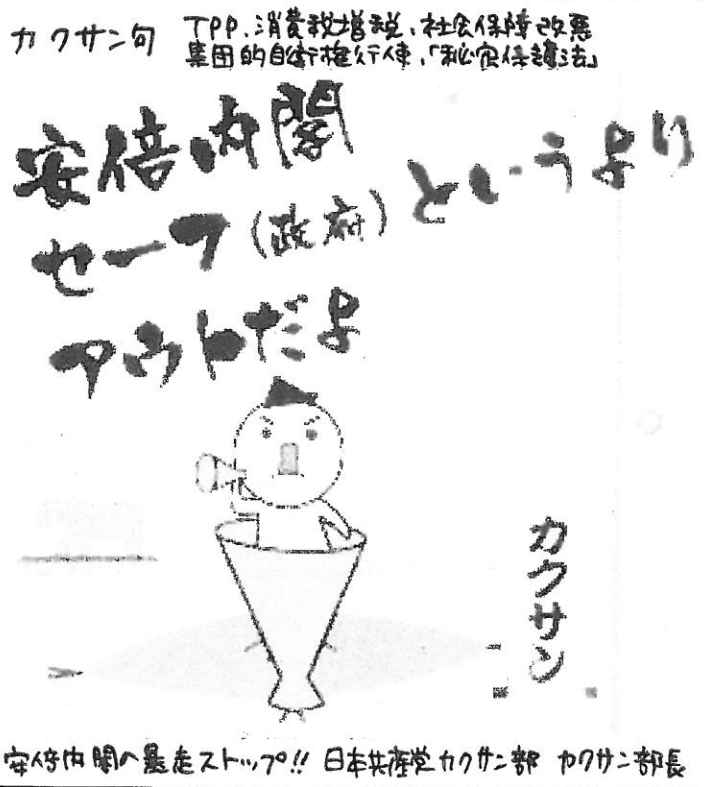 カクサン句
TPP、消費税増税、社会保障改悪
集団的自衛権行使、「秘密保護法」
安倍内閣
セーフ(政府)というより
アウトだよ
カクサン
安倍内閣の暴走ストップ!! 日本共産党カクサン部 カクサン部長